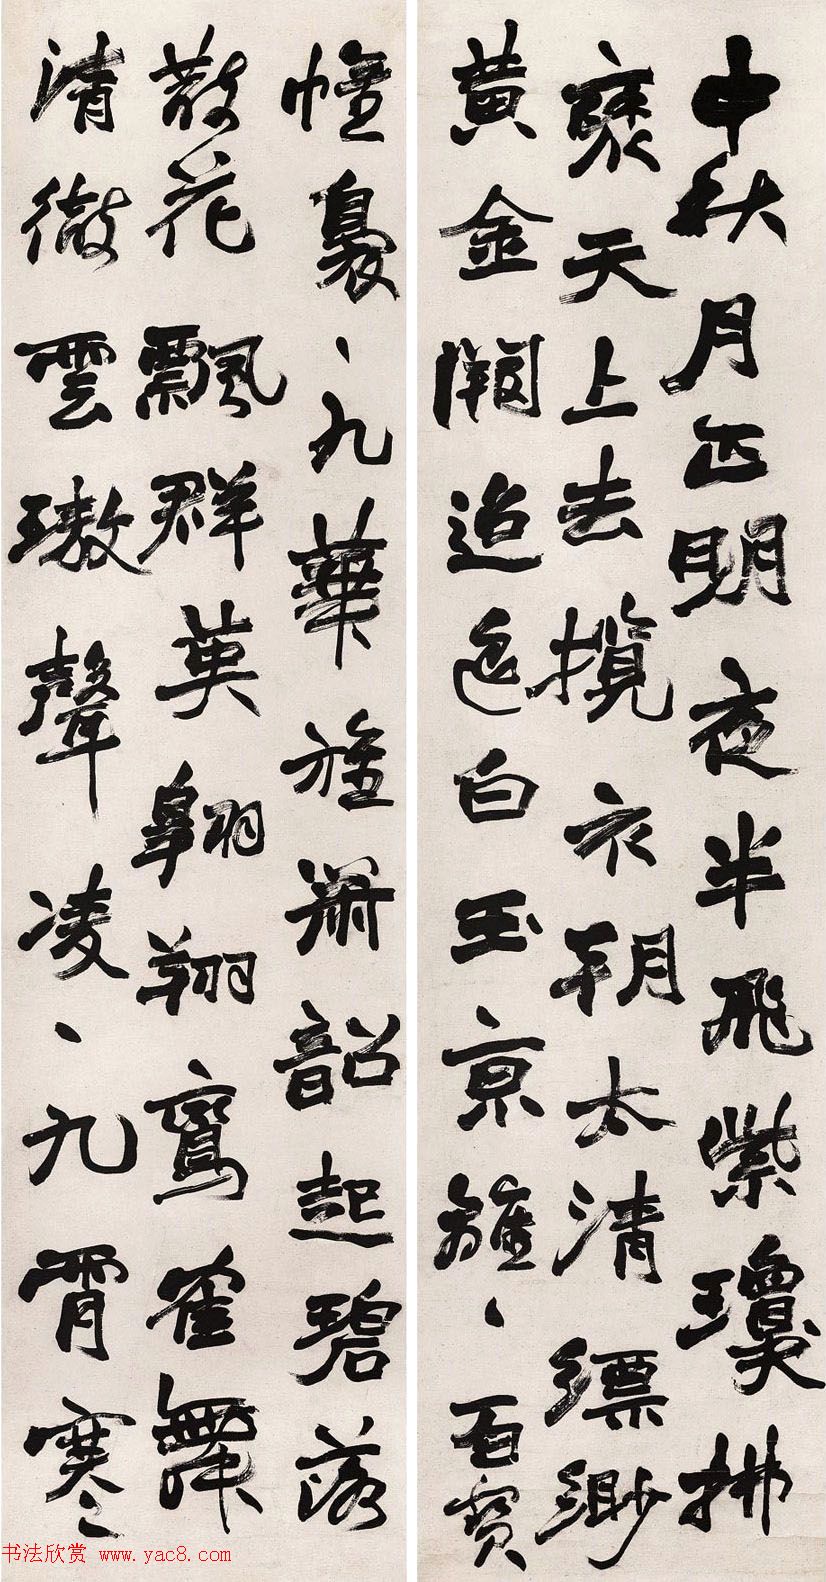 中秋月正明夜半飛紫瓊拂
褎天上去攬衣朝太清縹緲
黃金闕迢白玉京離、百寶
幢裊、九華旌簫韶起碧落
散花飄群英翱翔鸞雀舞
清徹雲璈聲凌、九霄寒
书法欣赏 www.yac8.com